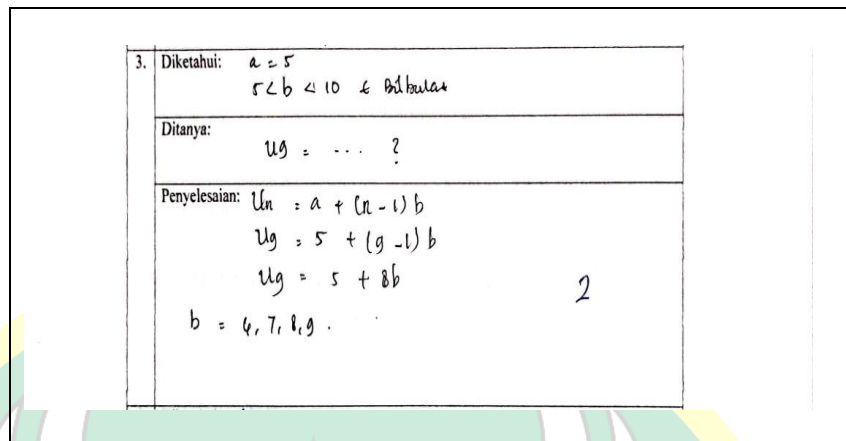 3. Diketahui: a = 5
5 < b < 10 € Bil bulat
Ditanya:
U9 = ... ?
Penyelesaian: Un = a + (n - 1) b
U9 = 5 + (9 - 1) b
U9 = 5 + 8b
2
b = 6, 7, 8, 9 .